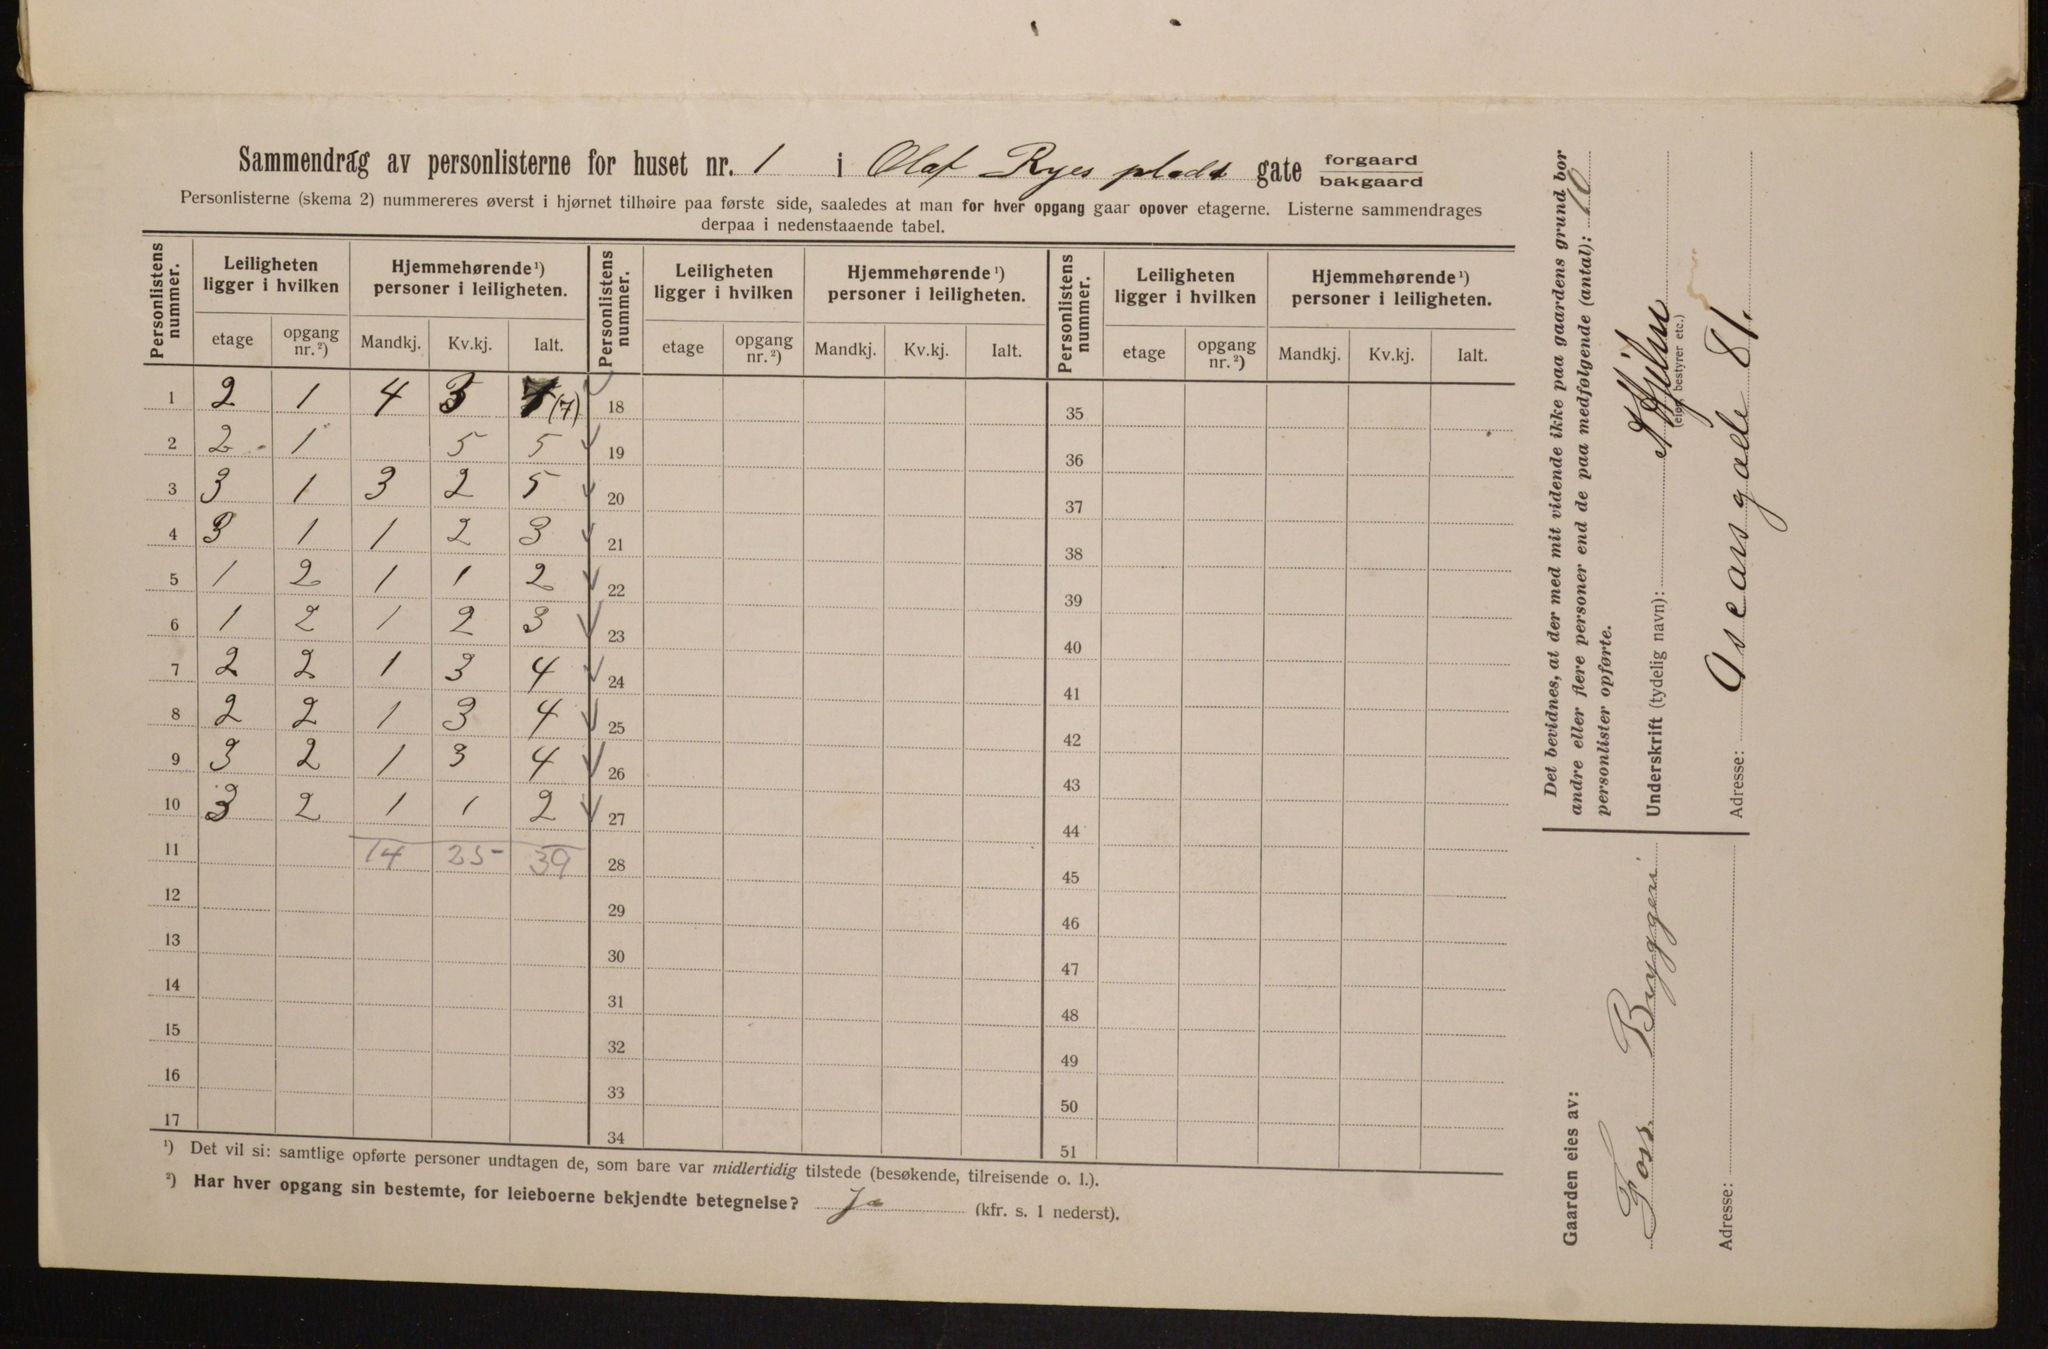 Sammendrag av personlisterne for huset nr. 1 i Olaf Ryes plads gate forgaard bakgaard
Personlisterne (skema 2) nummereres øverst i hjørnet tilhøire paa første side, saaledes at man for hver opgang gaar opover etagerne. Listerne sammendrages
derpaa i nedenstaaende tabel.
Personlistens nummer. Leiligheten ligger i hvilken Hjemmehørende ¹) personer i leiligheten. Personlistens nummer. Leiligheten ligger i hvilken Hjemmehørende ¹) personer i leiligheten. Personlistens nummer. Leiligheten ligger i hvilken Hjemmehørende ¹) personer i leiligheten.
etage opgang nr. ²) Mandkj. Kv.kj. Ialt. etage opgang nr. ²) Mandkj. Kv.kj. Ialt. etage opgang nr. ²) Mandkj. Kv.kj. Ialt.
1 2 1 4 3 7 (7) 18 35
2 2 1 5 5 19 36
3 3 1 3 2 5 20 37
4 3 1 1 2 3 21 38
5 1 2 1 1 2 22 39
6 1 2 1 2 3 23 40
7 2 2 1 3 4 24 41
8 2 2 1 3 4 25 42
9 3 2 1 3 4 26 43
10 3 2 1 1 2 27 44
11 14 25 39 28 45
12 29 46
13 30 47
14 31 48
15 32 49
16 33 50
17 34 51
¹) Det vil si: samtlige opførte personer undtagen de, som bare var midlertidig tilstede (besøkende, tilreisende o. l.).
²) Har hver opgang sin bestemte, for leieboerne bekjendte betegnelse? Ja (kfr. s. 1 nederst).
Det bevidnes, at der med mit vidende ikke paa gaardens grund bor
andre eller flere personer end de paa medfølgende (antal): 10
personlister opførte.
Underskrift (tydelig navn):
(eier, bestyrer etc.)
Adresse: Oscarsgade 81.
Gaarden eies av:
Foss Bryggeri
Adresse: